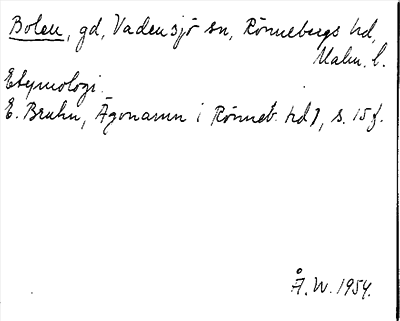 Bolen, gd, Vadensjö sn, Rönnebergs hd,
Malm. l.
Etymologi.
E. Bruhn, Ägonamn i Rönneb. hd 1, s. 15 f.
Å. W. 1954.